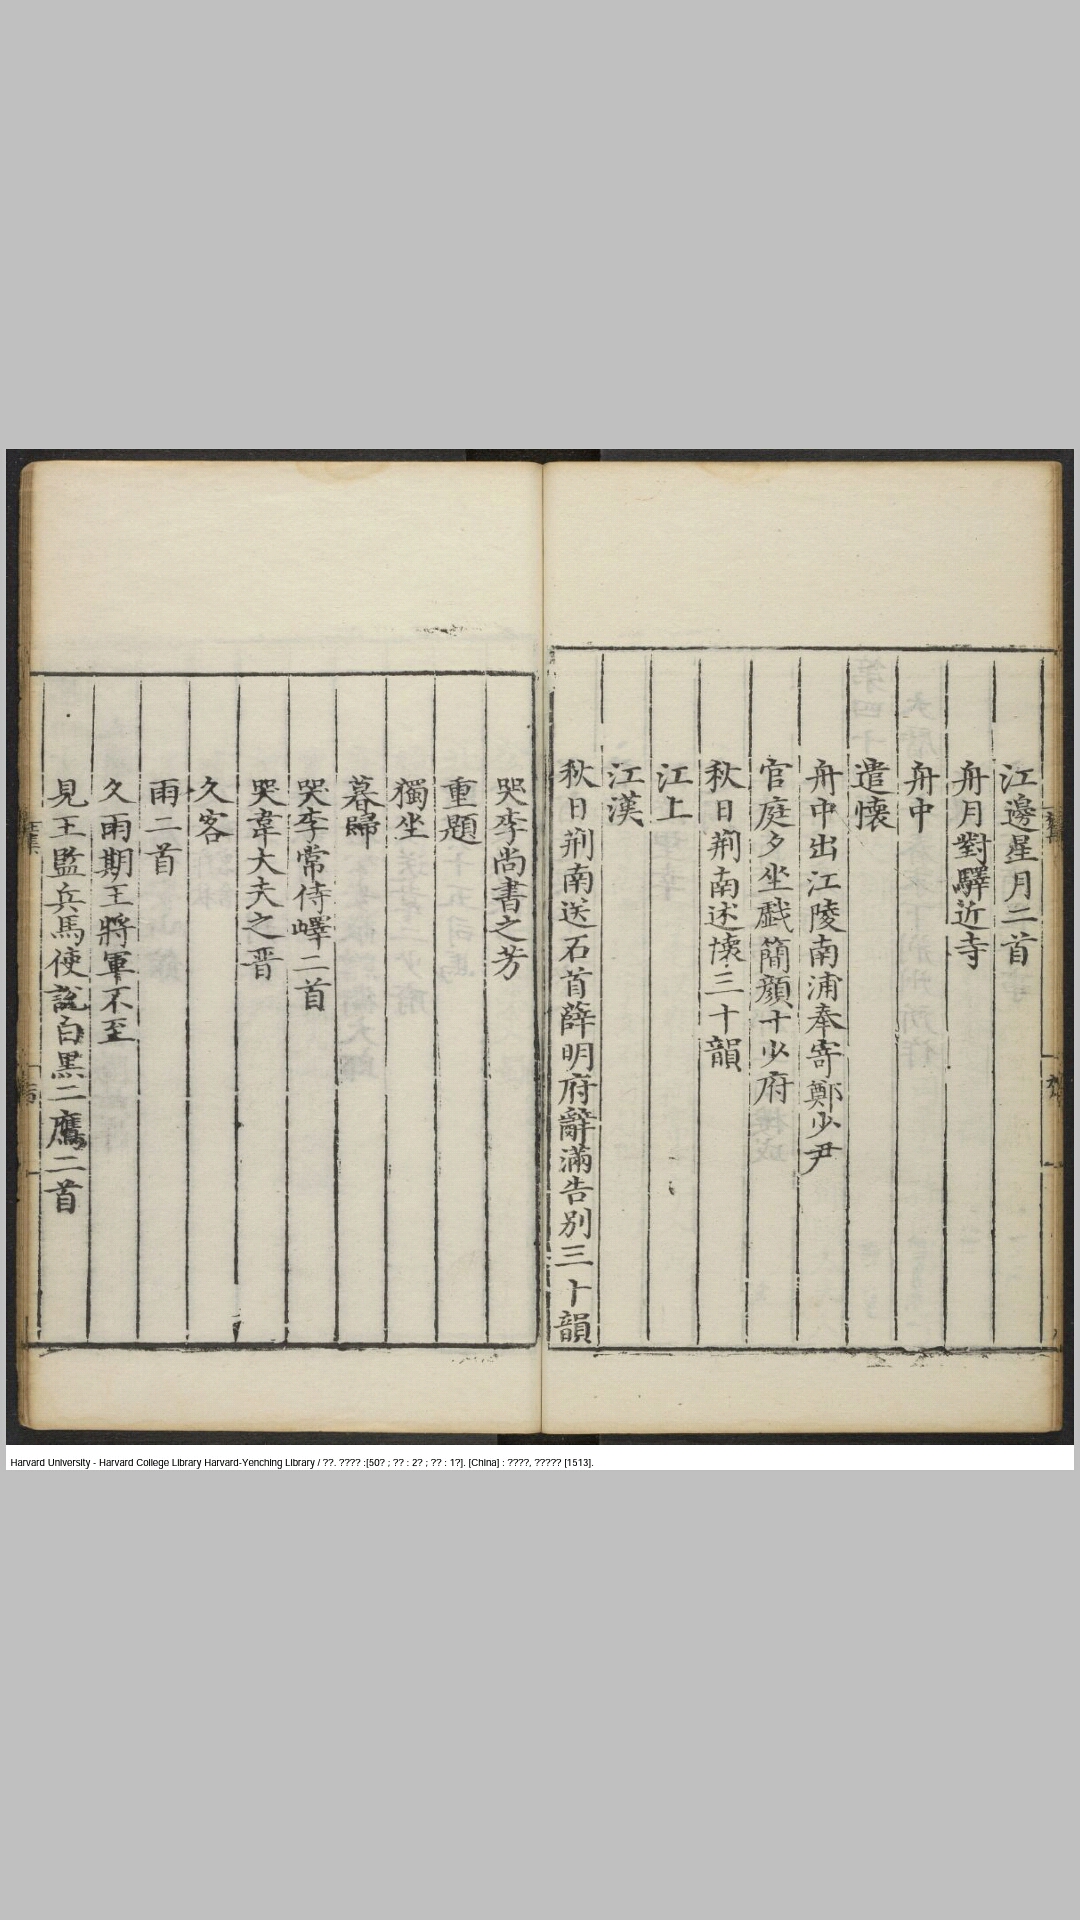 江邊星月二首
舟月對驛近寺
舟中
遣懷
舟中出江陵南浦奉寄鄭少尹
官庭夕坐戯簡顔十少府
秋日荆南述懐三十韻
江上
江漢
秋日荆南送石首薛明府辭滿告别三十韻
哭李尚書之芳
重題
獨坐
暮歸
哭李常侍嶧二首
哭韋大夫之晋
久客
雨二首
久雨期王將軍不至
見王監兵馬使說白黒二鷹二首
Harvard University - Harvard College Library Harvard-Yenching Library / ??. ???? :[50? ; ?? : 2? ; ?? : 1?]. [China] : ????, ????? [1513].